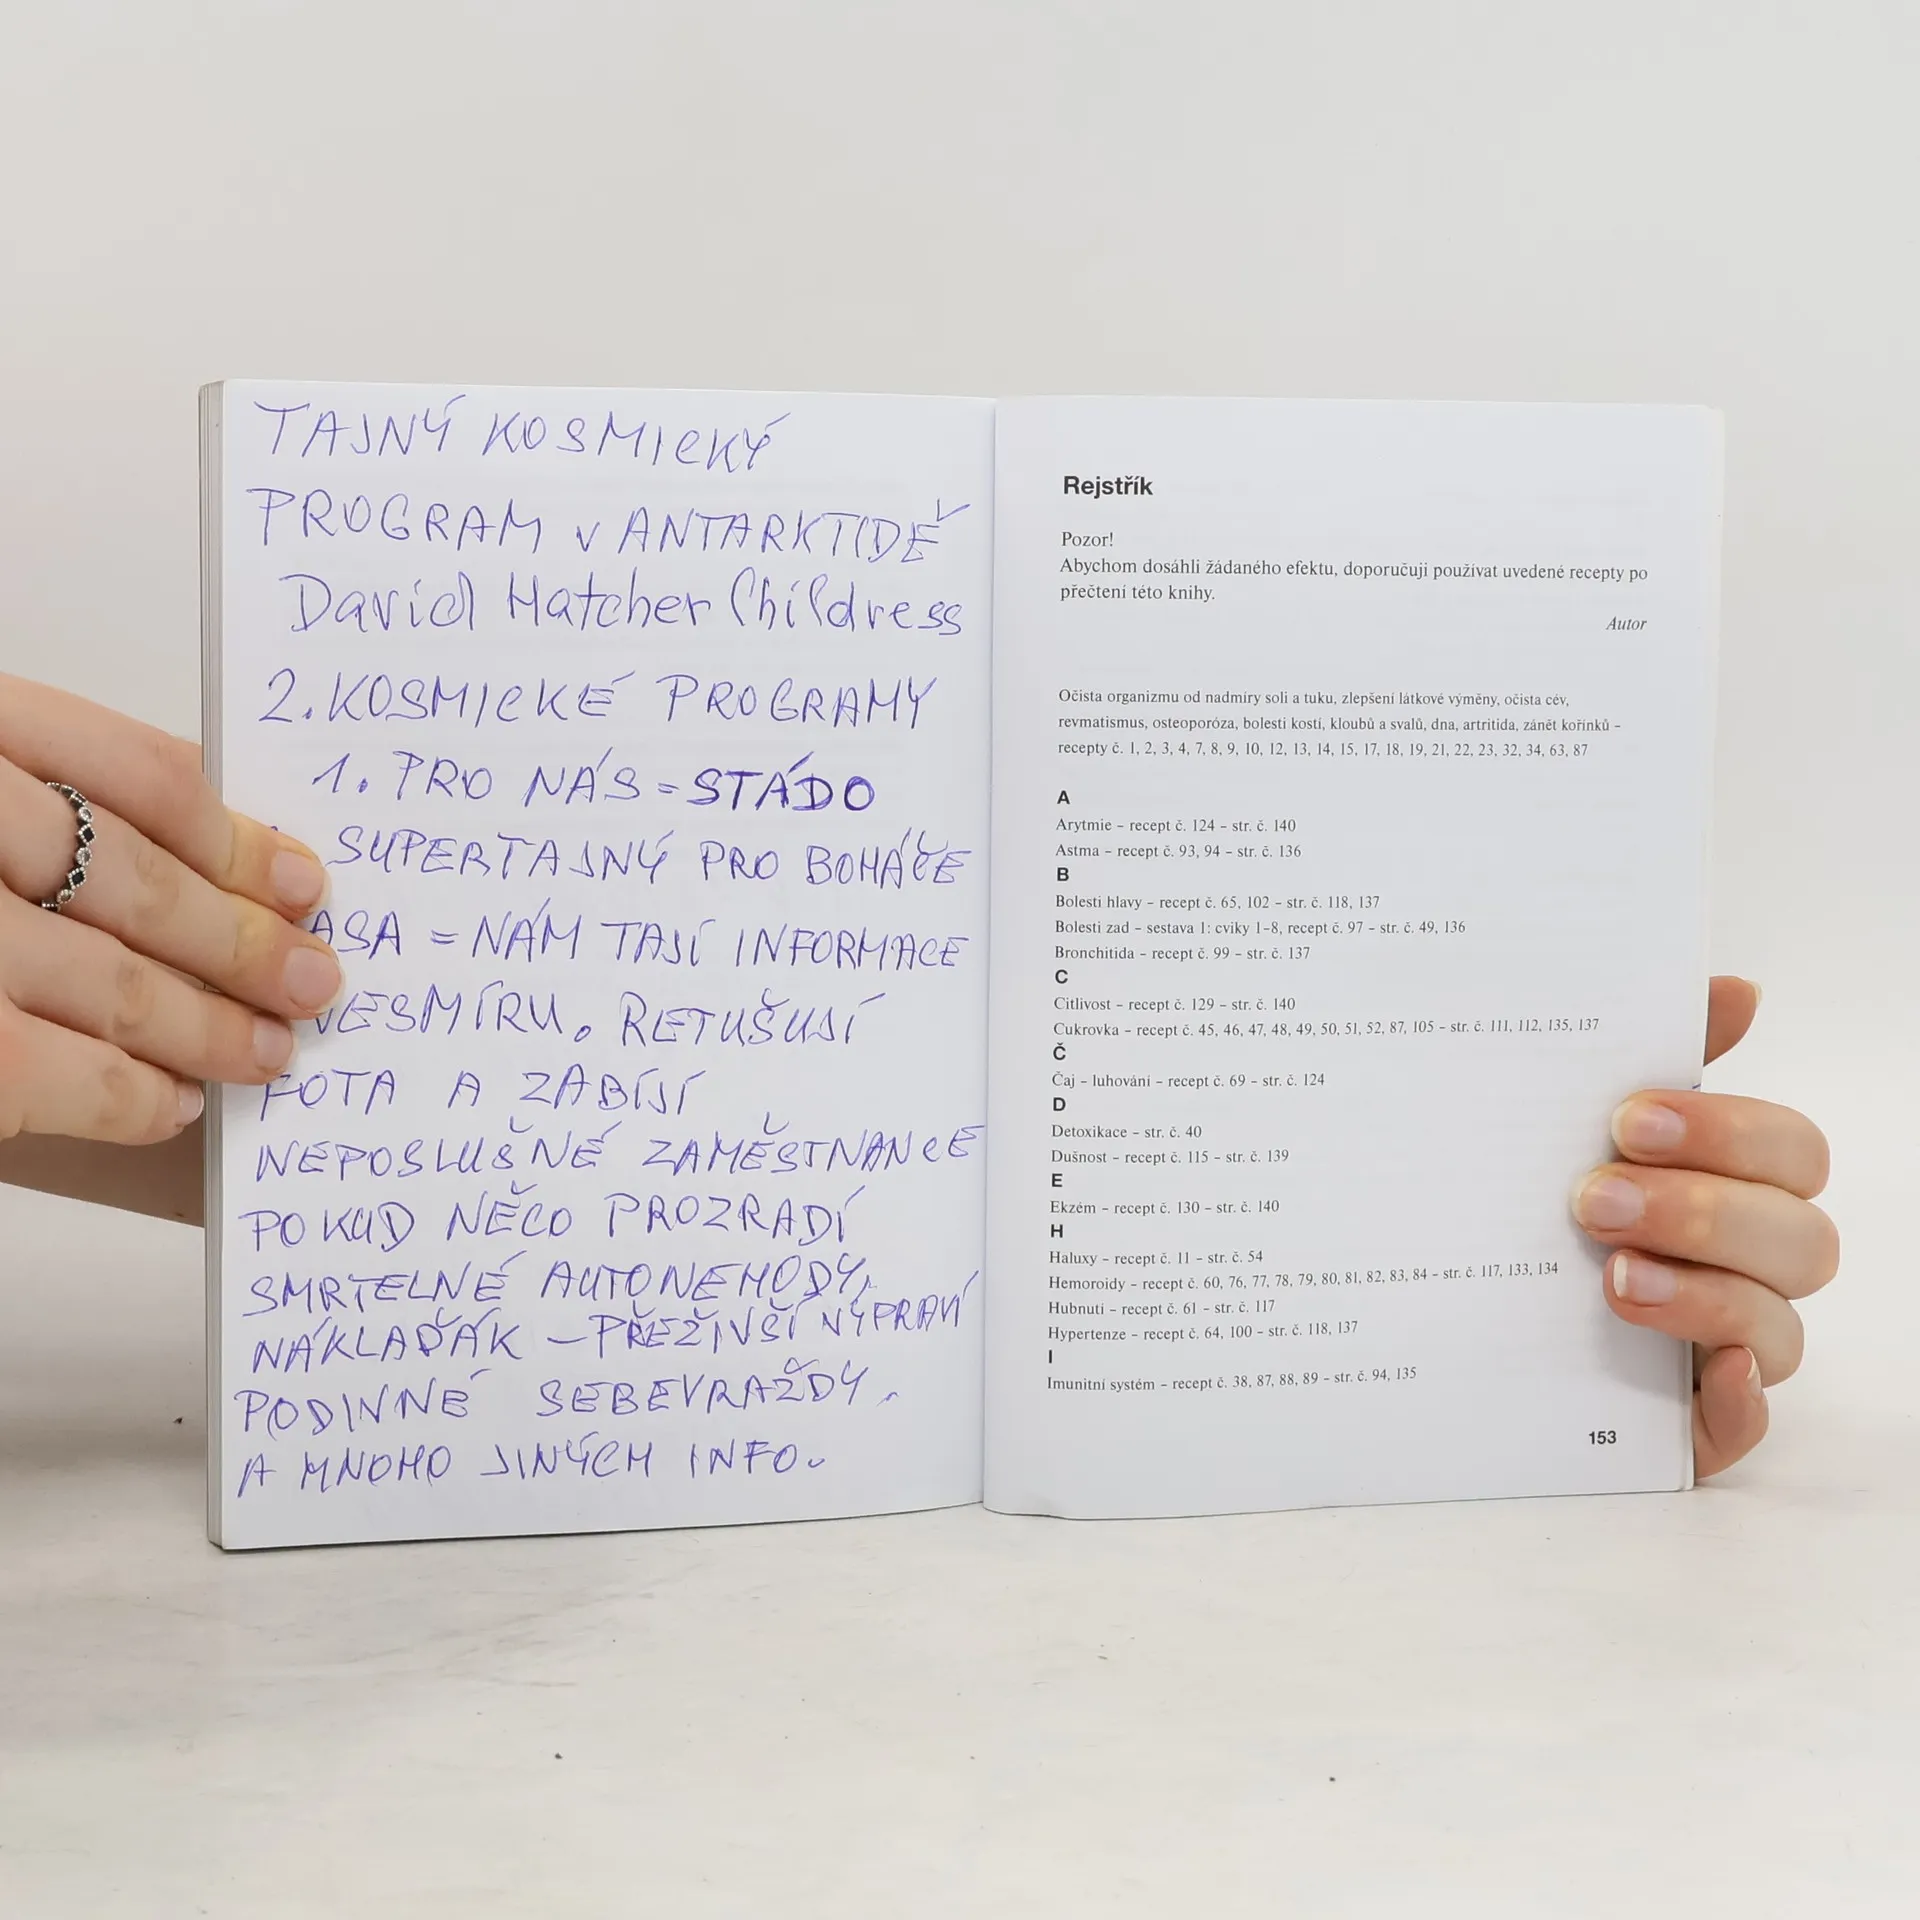 TAJNÝ KOSMICKÝ
PROGRAM V ANTARKTIDĚ
David Hatcher Childress
2. KOSMICKÉ PROGRAMY
1. PRO NÁS = STÁDO
SUPERTAJNÝ PRO BOHÁČE
ASA = NÁM TAJÍ INFORMACE
VESMÍRU. RETUŠUJÍ
FOTA A ZABÍJÍ
NEPOSLUŠNÉ ZAMĚSTNANCE
POKUD NĚCO PROZRADÍ
SMRTELNÉ AUTONEHODY,
NÁKLAĎÁK – PŘEŽIVŠÍ VYPRAVÍ
PODIVNÉ SEBEVRAŽDY,
A MNOHO JINÝCH INFO.
Rejstřík
Pozor!
Abychom dosáhli žádaného efektu, doporučuji používat uvedené recepty po
přečtení této knihy.
Autor
Očista organizmu od nadmíry soli a tuku, zlepšení látkové výměny, očista cév,
revmatismus, osteoporóza, bolesti kostí, kloubů a svalů, dna, artritida, zánět kořínků –
recepty č. 1, 2, 3, 4, 7, 8, 9, 10, 12, 13, 14, 15, 17, 18, 19, 21, 22, 23, 32, 34, 63, 87
A
Arytmie – recept č. 124 – str. č. 140
Astma – recept č. 93, 94 – str. č. 136
B
Bolesti hlavy – recept č. 65, 102 – str. č. 118, 137
Bolesti zad – sestava 1: cviky 1-8, recept č. 97 – str. č. 49, 136
Bronchitida – recept č. 99 – str. č. 137
C
Citlivost – recept č. 129 – str. č. 140
Cukrovka – recept č. 45, 46, 47, 48, 49, 50, 51, 52, 87, 105 – str. č. 111, 112, 135, 137
Č
Čaj – luhování – recept č. 69 – str. č. 124
D
Detoxikace – str. č. 40
Dušnost – recept č. 115 – str. č. 139
E
Ekzém – recept č. 130 – str. č. 140
H
Haluxy – recept č. 11 – str. č. 54
Hemoroidy – recept č. 60, 76, 77, 78, 79, 80, 81, 82, 83, 84 – str. č. 117, 133, 134
Hubnutí – recept č. 61 – str. č. 117
Hypertenze – recept č. 64, 100 – str. č. 118, 137
I
Imunitní systém – recept č. 38, 87, 88, 89 – str. č. 94, 135
153